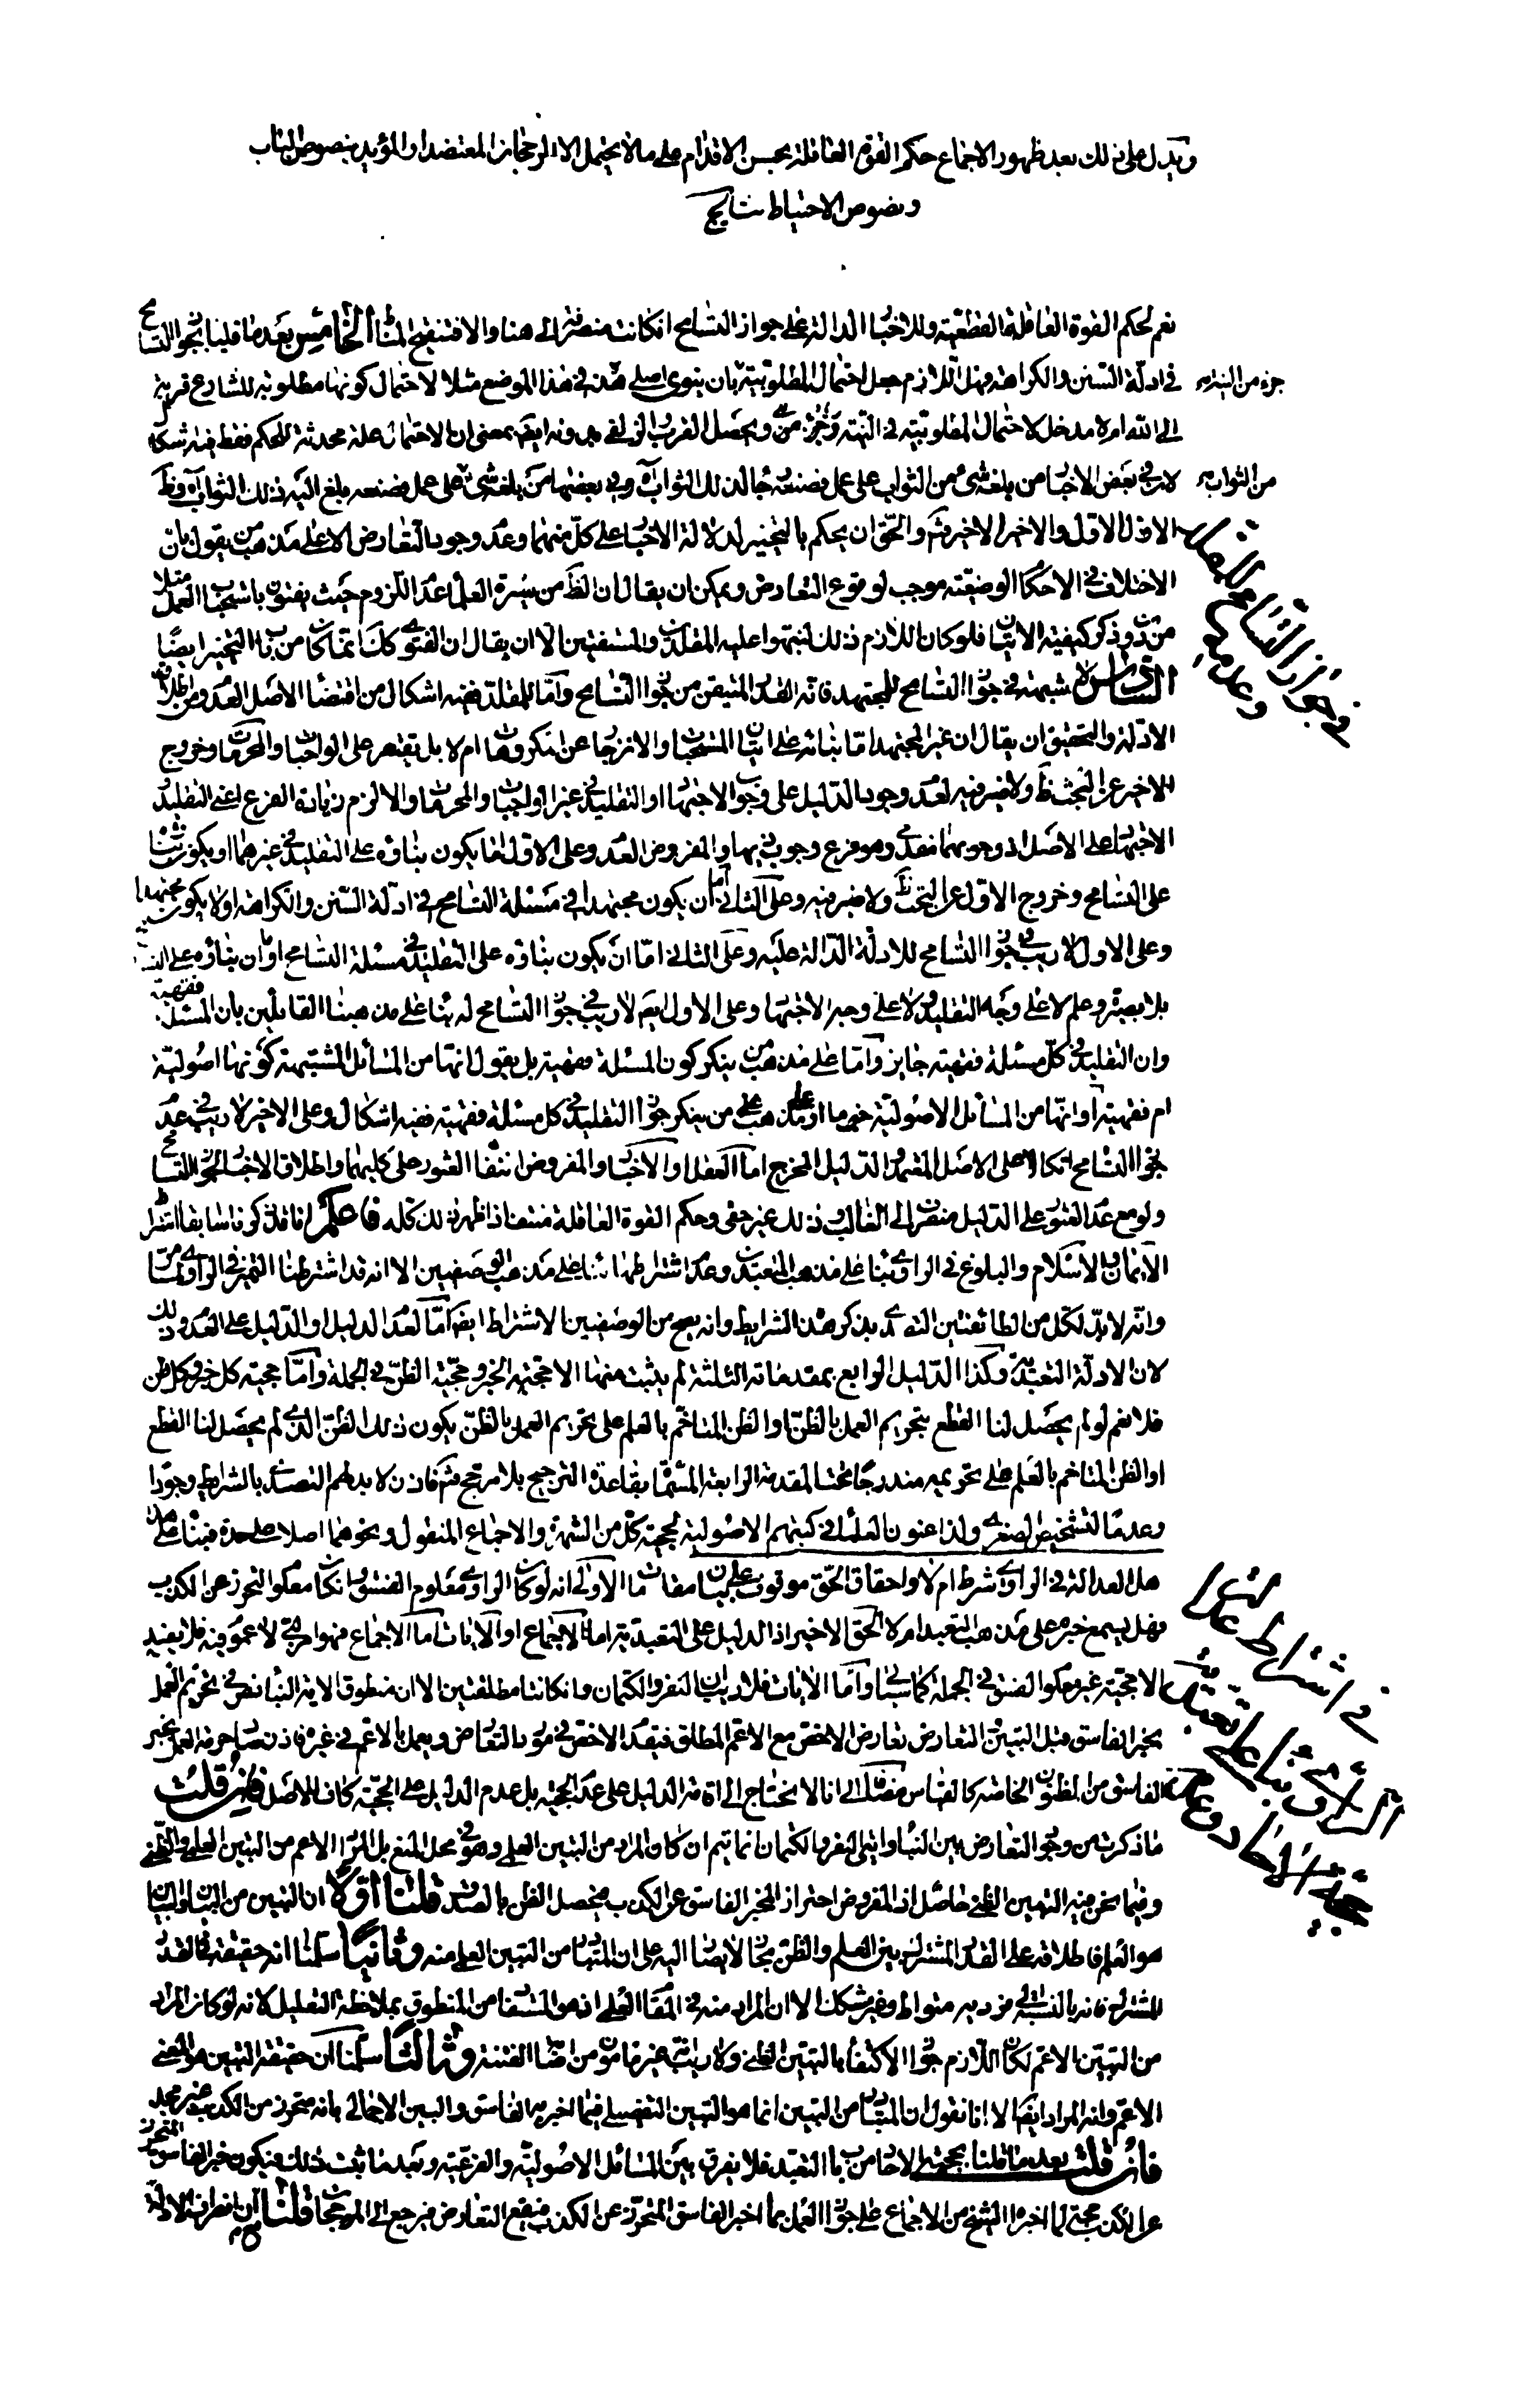 ويدل على ذلك بعد ظهور الاجماع حكم القوة العاقلة بحسن الاقدام على ما لا يحتمل الا الرجحان المعتضد او المؤيد بنصوص الباب
ونصوص الاحتياط
نعم لحكم القوة العاقلة القطعية وللاخبار الدالة على جواز التسامح ان كانت منصرفة الى هنا والا فتنقيح المناط الخامس بعد ما قلنا بجواز التسامح
في ادلة السنن والكراهة فهل اللازم جعل احتمال المطلوبية بان ينوى اصلى هذه في هذا الموضع مثلا لاحتمال كونها مطلوبة للشارع قربة
جزء من النية
الى الله ام لا مدخل لاحتمال المطلوبية في النية ويحصل القرب ايضا بمعنى ان الاحتمال علة محدثة للحكم فقط فيه اشكال
لان في بعض الاخبار من بلغه شئ من الثواب على عمل فصنعه كان له ذلك الثواب اه وفي بعضها من بلغه شئ على عمل فصنعه بلغ اليه ذلك الثواب اه وظ
من الثواب
الاول الاول والاخير الاخير والحق ان يحكم بالتخيير لدلالة الاخبار على كل منهما وعدم وجود التعارض الا على مذهب من يقول بان
الاختلاف في الاحكام الوضعية موجب لوقوع التعارض ويمكن ان يقال ان الظ من سيرة العلماء عدم اللزوم حيث يفتون باستحباب العمل مثلا
من دون ذكر كيفية الاتيان فلو كان اللازم ذلك لنبهوا عليه المقلدين والمستفتين الا ان يقال ان الفتوى كك انما كان من باب التخيير ايضا
السادس لا شبهة في جواز التسامح للمجتهد فانه القدر المتيقن من جواز التسامح واما للمقلد ففيه اشكال من اقتضاء الاصل العدم ومن اطلاق
الادلة والتحقيق ان يقال ان غير المجتهد اما بناؤه على اتيان المستحبات والانزجار عن المكروهات ام لا بل يقتصر على الواجبات والمحرمات وخروج
الاخير عن البحث ظ ولا ضير فيه لعدم وجود الدليل على وجوب الاجتهاد او التقليد في غير الواجبات والمحرمات والا لزم زيادة الفرع اعني التقليد
الاجتهاد على الاصل اذ وجوبهما مقدمي وهو فرع وجوب ذيها والمفروض العدم وعلى الاول اما يكون بناؤه على التقليد في غيرهما او يكون بناؤه
على التسامح وخروج الاول عن البحث ظ ولا ضير فيه وعلى الثاني اما ان يكون مجتهدا في مسئلة التسامح في ادلة السنن والكراهة او لا يكون مجتهدا
وعلى الاول لا ريب في جواز التسامح للادلة الدالة عليه وعلى الثاني اما ان يكون بناؤه على التقليد في مسئلة التسامح او ان بناؤه على
بلا بصيرة وعلم لا على وجه التقليد ولا على وجه الاجتهاد وعلى الاول ايضا لا ريب في جواز التسامح له بناء على مذهبنا القائلين بان المسئلة فقهية
وان التقليد في كل مسئلة فقهية جايز واما على مذهب من ينكر كون المسئلة فقهية بل يقول انها من المسائل المشتبهة كونها اصولية
ام فقهية او انها من المسائل الاصولية جزما او على مذهب من ينكر جواز التقليد في كل مسئلة فقهية ففيه اشكال وعلى الاخير لا ريب في عدم
جواز التسامح اتكالا على الاصل المقيد والدليل المخرج اما العقل او الاخبار والمفروض انتفاء العثور على كليهما واطلاق الاخبار لجواز التسامح
ولو مع عدم العثور على الدليل منصرف الى الغالب وذلك غير خفي وحكم القوة العاقلة منتف اذا ظهر ذلك كله فاعلم انا قد ذكرنا سابقا اشتراط
الايمان والاسلام والبلوغ في الراوي بناء على مذهب التعبديين وعدم اشتراطها بناء على مذهب الوصفيين الا انه قد اشترطنا التميز في الراوي
وانه لا بد لكل من الطائفتين التصدي بذكر هذه الشرايط وانه يصح من الوصفيين الاشتراط ايضا اما لعدم الدليل او الدليل على العدم وذلك
لان الادلة التعبدية وكذا الدليل الرابع بمقدماته الثلثة لم يثبت منها الا حجية الخبر وحجية الظن في الجملة واما حجية كل خبر وكل ظن
فلا نعم لو لم يحصل لنا القطع بتحريم العمل بالظن او الظن المتاخم بالعلم على تحريم العمل بالظن يكون ذلك الظن الذي لم يحصل لنا القطع
او الظن المتاخم بالعلم على تحريمه مندرجا تحت المقدمة الرابعة المسماة بقاعدة الترجيح بلا مرجح فاذن لا بد لهم التصدي بالشرايط وجودا
وعدما لتشخيص الصغرى ولذا عنون العلماء في كتبهم الاصولية لحجية كل من الشهرة والاجماع المنقول ونحوهما اصلا على حدة فبناء على هذا
هل العدالة في الراوي شرط ام لا واحقاق الحق موقوف على بيان مقامات الاولى انه لو كان الراوي معلوم الفسق وان كان معلوم التحرز عن الكذب
فهل يسمع خبره على مذهب التعبد ام لا الحق الاخير اذ الدليل على التعبدية اما الاجماع او الايات اما الاجماع فهو لا عموم فيه فلا يفيد
الا حجية غير معلوم الفسق في الجملة كما سيجئ واما الايات فلا ريب ان النفر والكتمان وان كانتا مطلقتين الا ان منطوق الاية النبأ نص في تحريم العمل
بخبر الفاسق قبل التبين فالتعارض تعارض الاخص مع الاعم المطلق فيقدم الاخص في مورد التعارض ويعمل بالاعم في غيره فاذن صار حرمة العمل بخبر
الفاسق من الظنون الخاصة كالقياس مضافا الى انا لا نحتاج الى اقامة الدليل على عدم الحجية بل عدم الدليل على الحجية كاف للاصل فان قلت
ما ذكرت من وجود التعارض بين النبأ وايتي النفر والكتمان انما يتم ان كان المراد من التبين العلمي وهو في محل المنع بل المراد الاعم من التبين العلمي والظني
وفيما نحن فيه التبين الظني حاصل اذ المفروض احتراز المخبر الفاسق عن الكذب فيحصل الظن بالصدق قلنا اولا ان التبين من البيان والبيان
هو العلم فاطلاقه على القدر المشترك بين العلم والظن مجاز لا يصار اليه على ان المتبادر من التبين العلمي منه وثانيا سلمنا انه حقيقة في القدر
المشترك فانه بالنسبة الى فرديه متواط وغير مشكك الا ان المراد منه في المقام العلمي اذ هو المستفاد من المنطوق بملاحظة التعليل لانه لو كان المراد
من التبين الاعم لكان اللازم جواز الاكتفاء بالتبين الظني ولا ريب انه غير مامون من اصابة الفتنة وثالثا سلمنا ان حقيقة التبين هو المعنى
الاعم وانه المراد ايضا الا انا نقول ان المتبادر من التبين انما هو التبين التفصيلي فيما اخبر به الفاسق والتبين الاجمالي بانه متحرز من الكذب غير مجد
فان قلت بعد ما قلنا بحجية الاحاد من باب التعبد فلا يفرق بين المسائل الاصولية والفرعية وبعد ما ثبت ذلك فيكون خبر الفاسق المتحرز
عن الكذب حجة لما اخبره الشيخ من الاجماع على جواز العمل بما اخبر الفاسق المتحرز عن الكذب فيقع التعارض فيرجع الى المرجحات قلنا ان انصراف الادلة
في جواز التسامح للمقلد وعدمه
في اشتراط عدالة الراوي بناء على تعبدية حجية الاحاد وعدمه